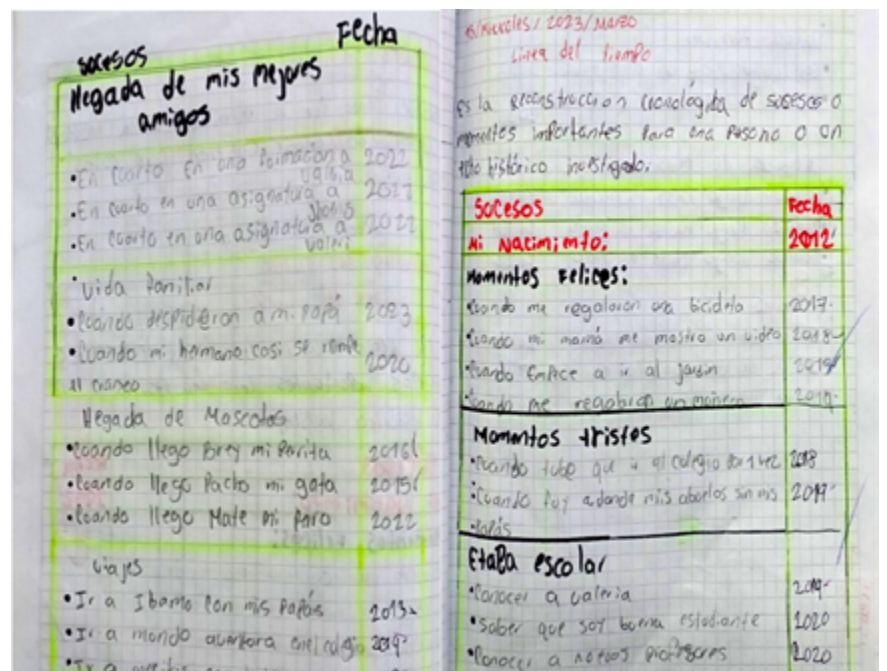 sucesos Fecha
llegada de mis mejores
amigos
•En cuarto en una formacion a 2022
valeria
•En cuarto en una asignatura a 2022
•En cuarto en una asignatura a 2022
valeri
vida familiar
•cuando despidieron a mi papá 2023
•cuando mi hermano casi se rompe 2020
el craneo
llegada de Mascotas
•cuando llego Brey mi perrita 2016
•cuando llego Pacho mi gato 2015
•cuando llego Mate mi perro 2022
viajes
•Ir a Ibamo con mis papás 2013
•Ir a mundo aventura con el colegio 2019
•Ir a
Miercoles / 2023 / Marzo
Linea del tiempo
Es la reconstruccion cronológica de sucesos o
momentos importantes para una persona o un
histórico investigado.
Sucesos Fecha
Mi Nacimiento: 2012
Momentos Felices:
•cuando me regalaron una bicicleta 2017
•cuando mi mamá me mostro un video 2018
•cuando empece a ir al jardin 2015
•cuando me regalaron un 2019
Momentos tristes
•cuando tube que ir al colegio por 1 vez 2018
•cuando fuy adonde mis abuelos sin mis 2019
papás
Etapa escolar
•conocer a valeria 2019
•saber que soy buena estudiante 2020
•conocer a nuevos profesores 2020